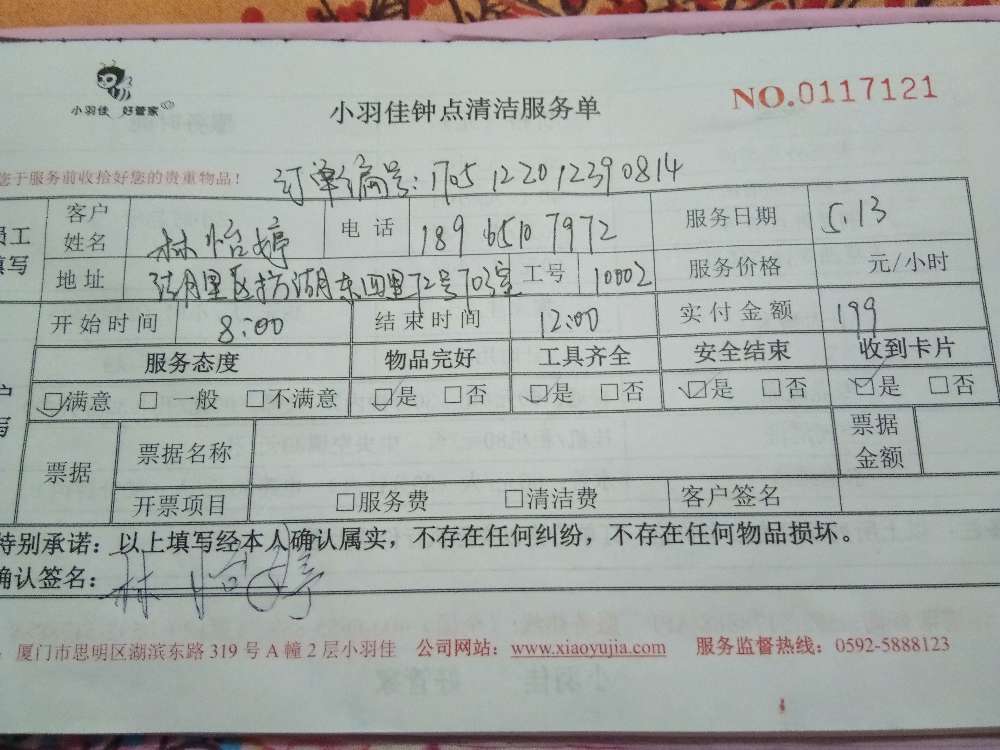 小羽佳 好管家
小羽佳钟点清洁服务单
NO.0117121
您于服务前收拾好您的贵重物品!
订单编号:1705122012390814
员工填写
客户姓名 林怡婷 电话 189 6510 7972 服务日期 5.13
地址 湖里区枋湖东四里72号703室 工号 10002 服务价格 元/小时
开始时间 8:00 结束时间 12:00 实付金额 199
服务态度 物品完好 工具齐全 安全结束 收到卡片
☑满意 □一般 □不满意 ☑是 □否 ☑是 □否 ☑是 □否 ☑是 □否
票据 票据名称 票据金额
开票项目 □服务费 □清洁费 客户签名
特别承诺:以上填写经本人确认属实,不存在任何纠纷,不存在任何物品损坏。
确认签名:林怡婷
厦门市思明区湖滨东路 319 号 A 幢 2 层小羽佳 公司网站:www.xiaoyujia.com 服务监督热线:0592-5888123